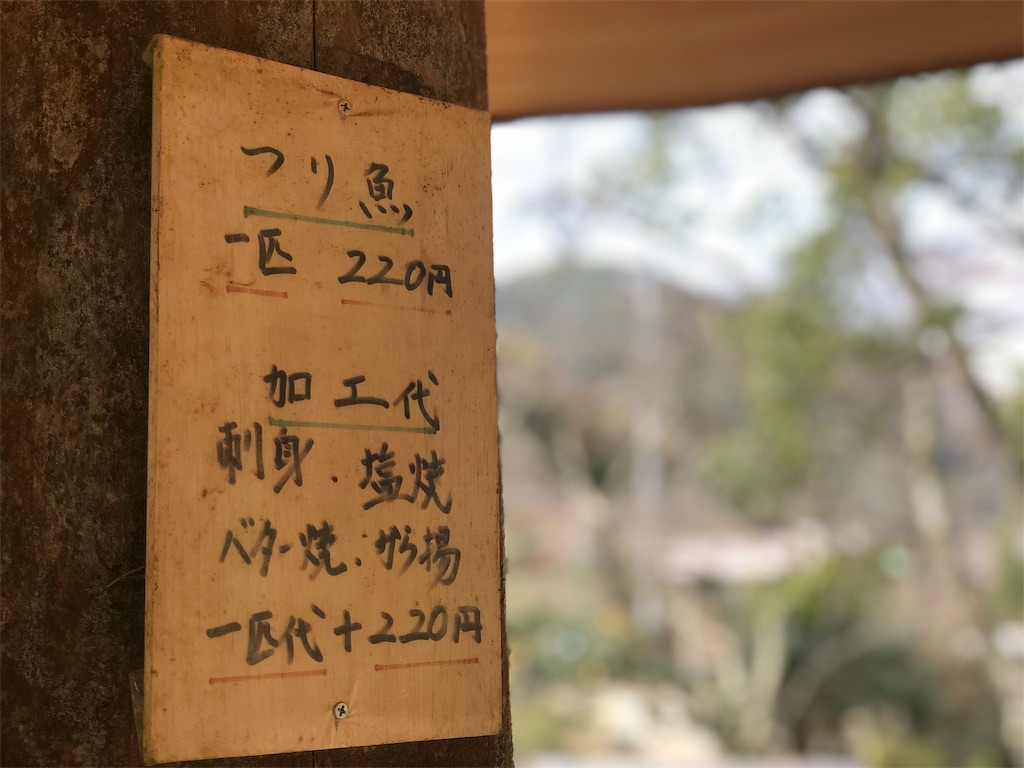 つり魚
一匹 220円
加工代
刺身.塩焼
バター焼.から揚
一匹代+220円